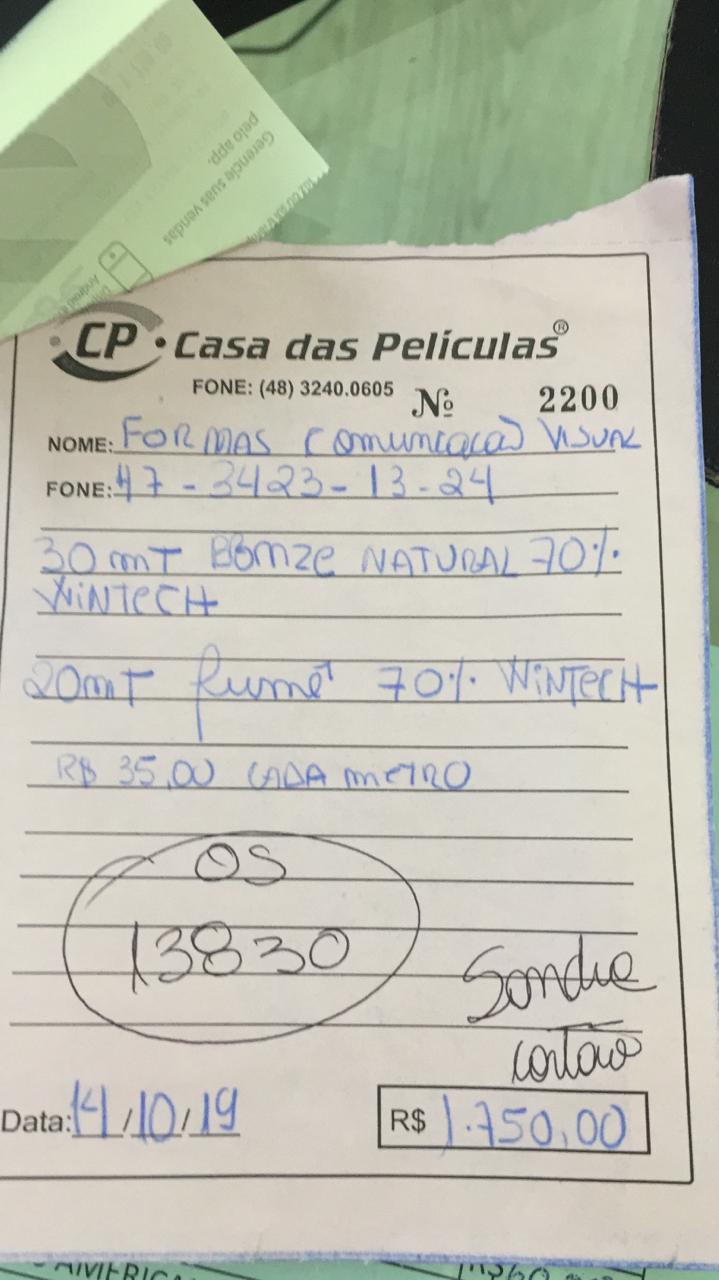 Gerencie suas vendas
pelo app.
CP · Casa das Películas®
FONE: (48) 3240.0605 Nº 2200
NOME: FORMAS COMUNICAÇÃO VISUAL
FONE: 47-3423-13-24
30mT BRONZE NATURAL 70%
WINTECH
20mT fumê 70% WINTECH
R$ 35,00 CADA METRO
OS
13830
cartão
Data: 14/10/19 R$ 1.750,00